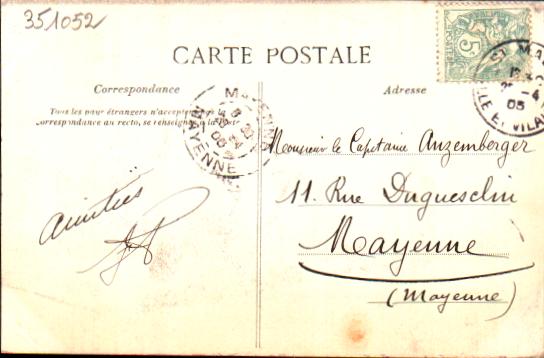 351052
CARTE POSTALE
5c
POSTES
Correspondance
Adresse
Tous les pays étrangers n'acceptent pas la
correspondance au recto, se renseigner à la Poste
MAYENNE
MAYENNE
ST MA
-4
05
ILLE ET VILAI
Monsieur le Capitaine Anzemberger
11. Rue Duguesclin
Mayenne
(Mayenne)
amitiés